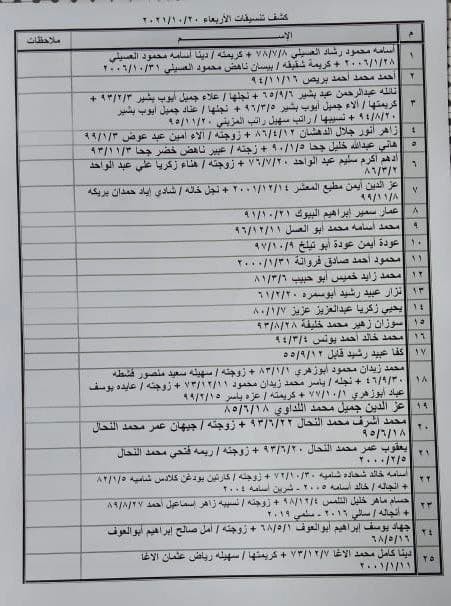 كشف تنسيقات الأربعاء ٢٠٢١/١٠/٢٠
م الإســـم ملاحظات
١ أسامه محمود رشاد العسيلي ٧٨/٧/٨ + كريمته / دينا أسامه محمود العسيلي
٢٠٠٦/١/٢٨ + كريمة شقيقه / بيسان ناهض محمود العسيلي ٢٠٠٦/١٠/٣١
٢ أحمد محمد أحمد بريص ٩٤/١١/١٦
٣ نائله عبدالرحمن عيد بشير ٦٥/٩/٦ + نجلها / علاء جميل أيوب بشير ٩٣/٢/٣ +
كريمتها / آلاء جميل أيوب بشير ٩٦/٣/٥ + نجلها / عناد جميل أيوب بشير
٩٤/٨/٢٠ + نسيبها / راتب سهيل راتب المزيني ٩٥/١١/٢٠
٤ زاهر أنور جلال الدهشان ٨٦/٤/١٢ + زوجته / الاء امين عيد عوض ٩٩/١/٣
٥ هاني عبدالله خليل جحا ٩٠/١/٥ + زجته / عبير ناهض خضر جحا ٩٣/١١/٣
٦ أدهم أكرم سليم عبد الواحد ٧٦/٧/٢٠ + زوجته / هناء زكريا علي عبد الواحد
٨٦/٣/٢
٧ عز الدين أيمن مطيع المعشر ٢٠٠١/١٢/١٤ + نجل خانه / شادي إياد حمدان بريكه
٩٩/١١/٨
٨ عمار سمير إبراهيم البيوك ٩١/١٠/٢١
٩ محمد أسامه محمد أبو العسل ٩٦/١٢/١١
١٠ عودة أيمن عودة أبو تيلخ ٩٧/١٠/٩
١١ محمود أحمد صادق فروانة ٢٠٠٠/١/٣١
١٢ محمد زايد خميس أبو حبيب ٨١/٣/٦
١٣ نزار عبيد رشيد أبوسمره ٦١/٢/٢٠
١٤ يحيي زكريا عبدالعزيز عزيز ٨٠/١/٧
١٥ سوزان زهير محمد خليفة ٩٣/٨/٢٨
١٦ محمد خالد أحمد يونس ٩٤/٣/٤
١٧ كفا عبيد رشيد قابل ٥٥/٩/١٢
١٨ محمد زيدان محمود أبوزهري ٨٣/١/١ + زوجته / سهيله سعيد منصور قشطه
٤٦/٩/٣٠ + نجله / ياسر محمد زيدان محمود ٧٣/١٢/١١ + زوجته / عايده يوسف
عياد أبوزهري ٧٧/١٠/١ + كريمته / عزه ياسر ٩٩/٢/١٥
١٩ عز الدين جميل محمد اللداوي ٨٥/٦/١٨
٢٠ محمد أشرف محمد النحال ٩٣/٦/٢٢ + زوجته / جيهان عمر محمد النحال
٩٥/٦/١٨
٢١ يعقوب عمر محمد النحال ٩٣/٦/٢٠ + زوجته / ريمه فتحي محمد النحال
٢٠٠٠/٢/٥
٢٢ أسامه خالد شحاده شاميه ٧٢/١٠/٣٠ + زوجته / كارتين بودغن كلادس شاميه ٨٢/١/٥
+ أنجاله / خالد أسامه ٢٠٠٥ - شرين أسامه ٢٠٠٤
٢٣ حسام ماهر خليل التلمس ٩٨/١٢/٤ + زوجته / نسيبه زاهر إسماعيل أحمد ٨٩/٨/٢٧
+ أنجاله / سالي ٢٠١٦ - سلمي ٢٠١٩
٢٤ جهاد يوسف إبراهيم أبوالعوف ٦٨/٥/١ + زوجته / أمل صالح إبراهيم أبوالعوف
٦٨/٥/١٦
٢٥ دينا كامل محمد الاغا ٧٣/١٢/٧ + كريمتها / سهيله رياض عثمان الاغا
٢٠٠١/١/١١